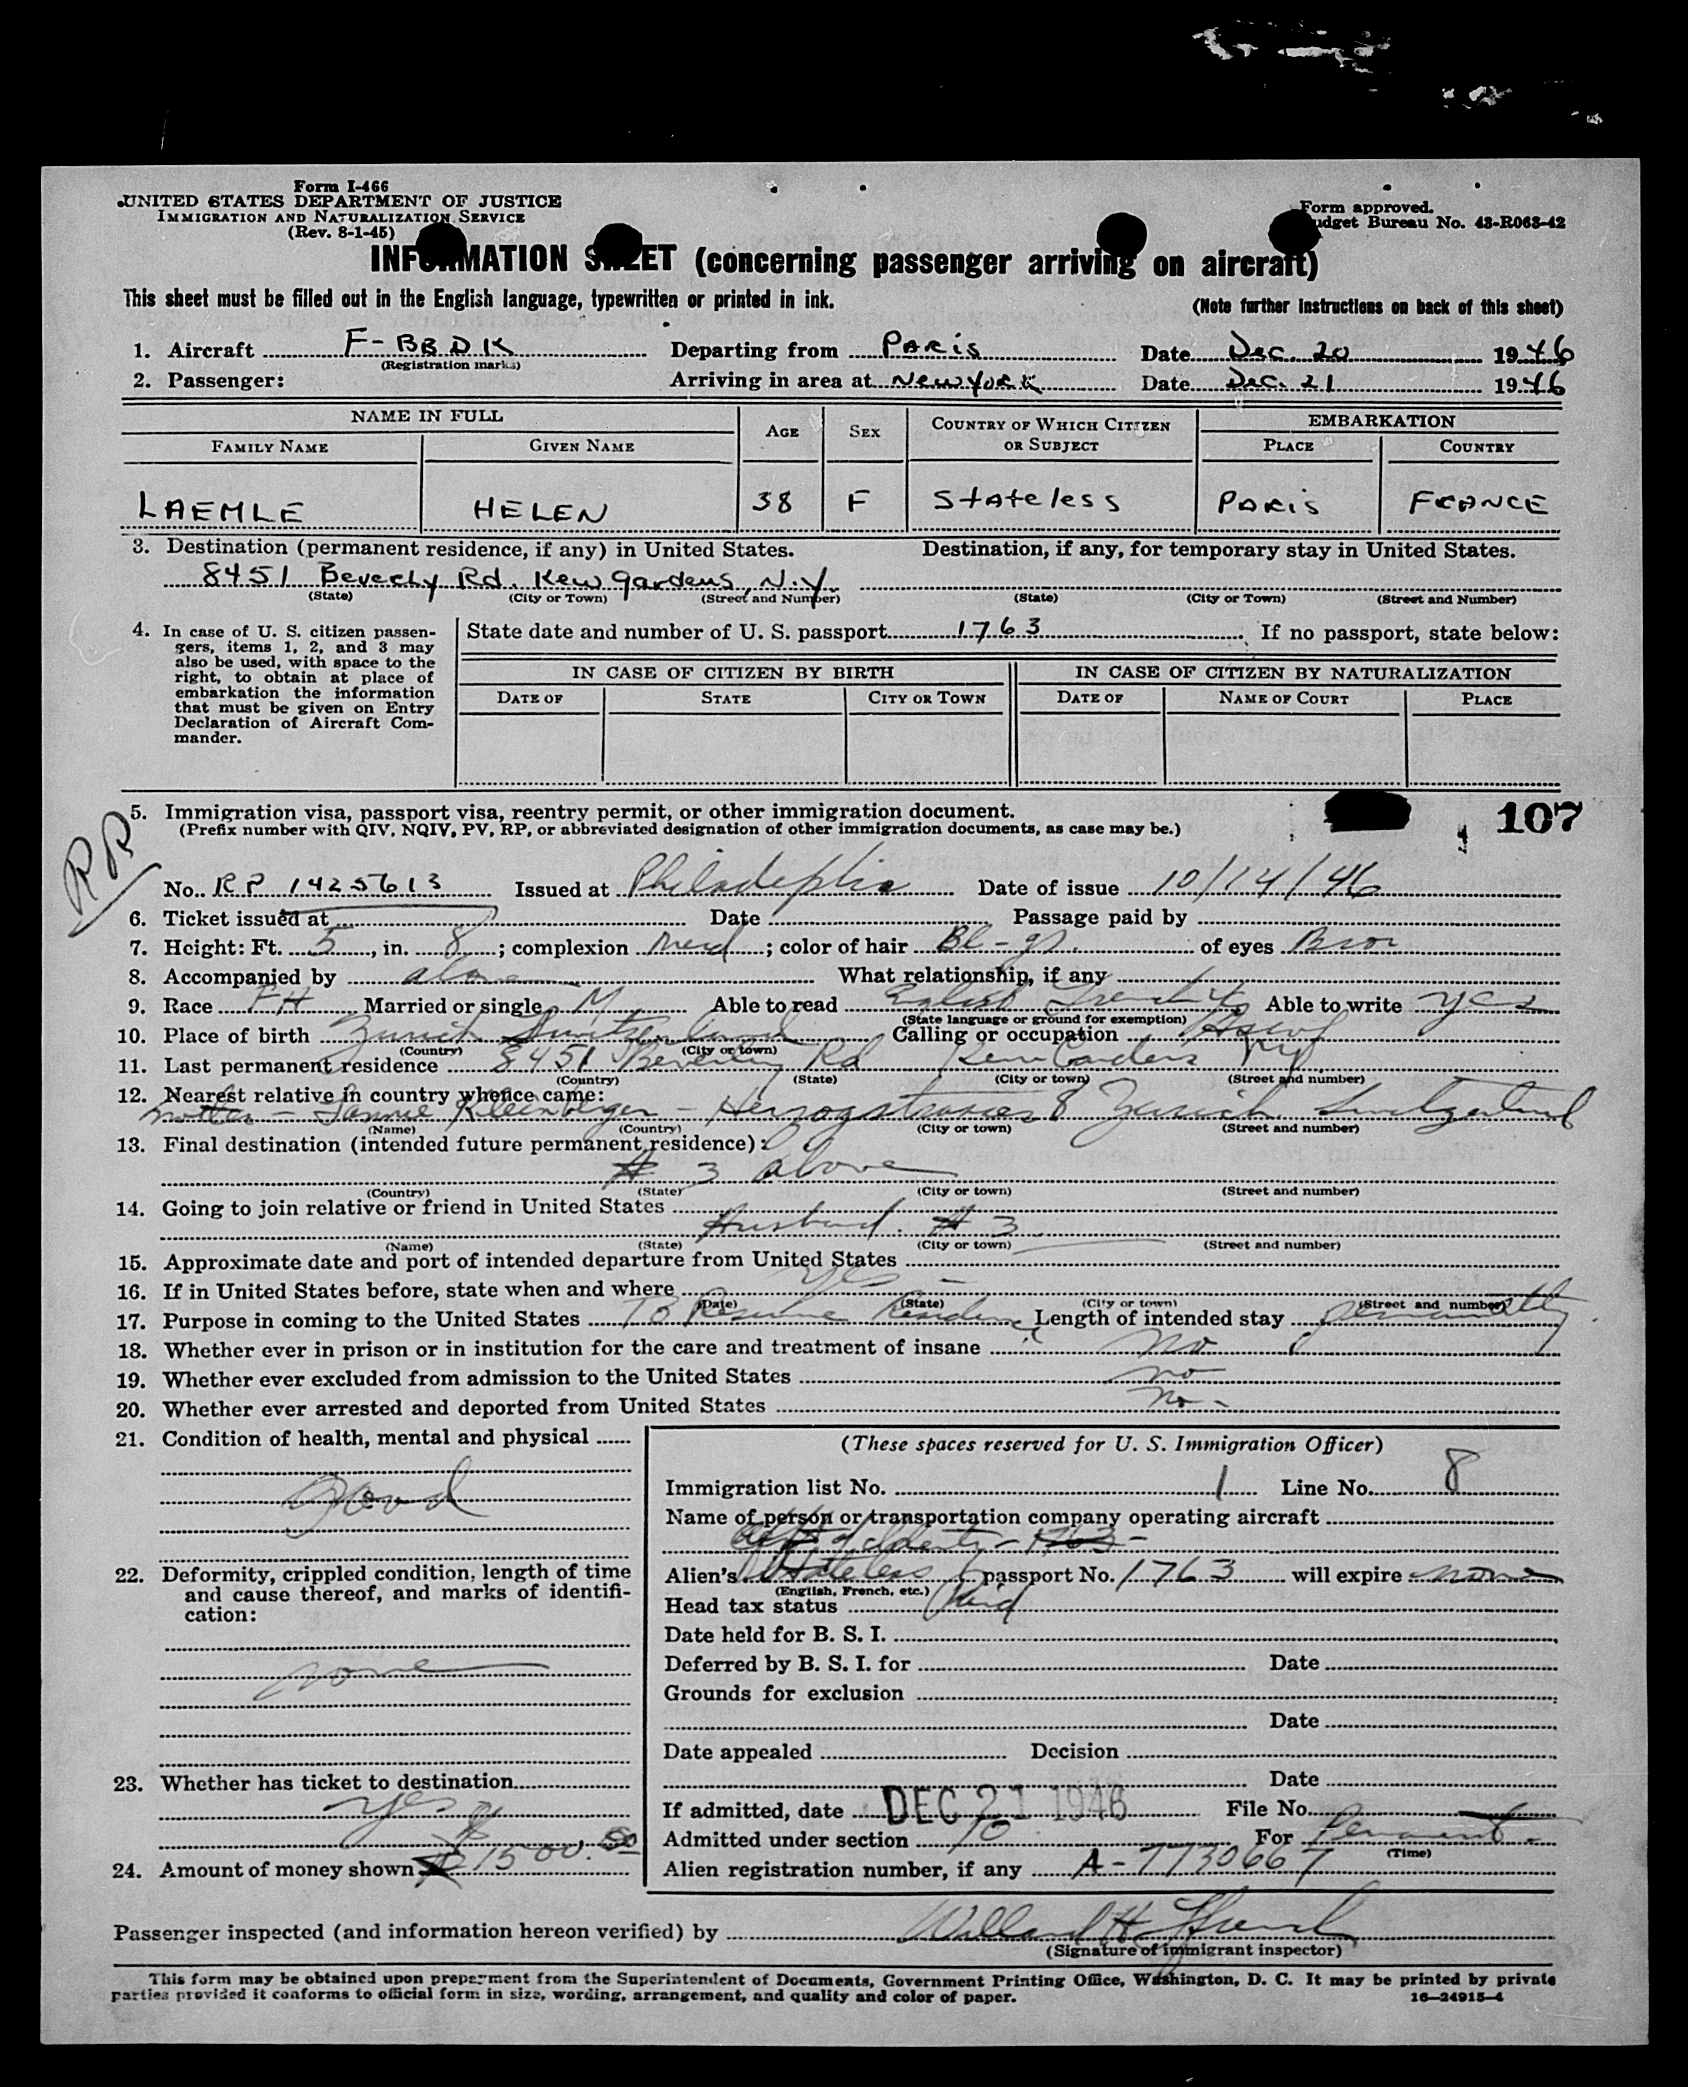 Form I-466
UNITED STATES DEPARTMENT OF JUSTICE
IMMIGRATION AND NATURALIZATION SERVICE
(Rev. 8-1-45)
Form approved.
Budget Bureau No. 43-R063-42
INFORMATION SHEET (concerning passenger arriving on aircraft)
This sheet must be filled out in the English language, typewritten or printed in ink.
(Note further instructions on back of this sheet)
1. Aircraft F-BBDK Departing from PARIS Date Dec. 20 1946
(Registration marks)
2. Passenger: Arriving in area at New York Date Dec. 21 1946
NAME IN FULL AGE SEX COUNTRY OF WHICH CITIZEN OR SUBJECT EMBARKATION
FAMILY NAME GIVEN NAME PLACE COUNTRY
LAEMLE HELEN 38 F Stateless PARIS FRANCE
3. Destination (permanent residence, if any) in United States. Destination, if any, for temporary stay in United States.
8451 Beverly Rd. Kew Gardens, N.Y
(State) (City or Town) (Street and Number) (State) (City or Town) (Street and Number)
4. In case of U. S. citizen passengers, items 1, 2, and 3 may also be used, with space to the right, to obtain at place of embarkation the information that must be given on Entry Declaration of Aircraft Commander.
State date and number of U. S. passport 1763 If no passport, state below:
IN CASE OF CITIZEN BY BIRTH IN CASE OF CITIZEN BY NATURALIZATION
DATE OF STATE CITY OR TOWN DATE OF NAME OF COURT PLACE
5. Immigration visa, passport visa, reentry permit, or other immigration document.
(Prefix number with QIV, NQIV, PV, RP, or abbreviated designation of other immigration documents, as case may be.)
107
RP
No. RP 1425613 Issued at Philadeplia Date of issue 10/14/46
6. Ticket issued at Date Passage paid by
7. Height: Ft. 5, in. 8; complexion Med; color of hair Bl-gr. of eyes Bror
8. Accompanied by alone What relationship, if any
9. Race Married or single M Able to read English French Able to write yes
(State language or ground for exemption)
10. Place of birth Zurich Switzerland Calling or occupation Hswf
(Country) (City or town)
11. Last permanent residence 8451 Beverley Rd Kew Gardens NY
(Country) (State) (City or town) (Street and number)
12. Nearest relative in country whence came:
mother - Kleinberger - Herzogstrasse 8 Zurich Switzerland
(Name) (Country) (City or town) (Street and number)
13. Final destination (intended future permanent residence):
# 3 above
(Country) (State) (City or town) (Street and number)
14. Going to join relative or friend in United States
Husband. # 3
(Name) (State) (City or town) (Street and number)
15. Approximate date and port of intended departure from United States
16. If in United States before, state when and where yes -
(Date) (State) (City or town) (Street and number)
17. Purpose in coming to the United States To Resume Residence Length of intended stay permanently
18. Whether ever in prison or in institution for the care and treatment of insane no
19. Whether ever excluded from admission to the United States no
20. Whether ever arrested and deported from United States no -
21. Condition of health, mental and physical
Good
22. Deformity, crippled condition, length of time and cause thereof, and marks of identification:
none
23. Whether has ticket to destination
yes
24. Amount of money shown $1500.00
(These spaces reserved for U. S. Immigration Officer)
Immigration list No. 1 Line No. 8
Name of person or transportation company operating aircraft
Afft of Identity - 1763 -
Alien's Stateless passport No. 1763 will expire none
(English, French, etc.)
Head tax status Paid
Date held for B. S. I.
Deferred by B. S. I. for Date
Grounds for exclusion
Date
Date appealed Decision
Date
If admitted, date DEC 21 1946 File No.
Admitted under section 10 For Permanent -
(Time)
Alien registration number, if any A-7730667
Passenger inspected (and information hereon verified) by Willard H
(Signature of immigrant inspector)
This form may be obtained upon prepayment from the Superintendent of Documents, Government Printing Office, Washington, D. C. It may be printed by private
parties provided it conforms to official form in size, wording, arrangement, and quality and color of paper.
16—24915-4